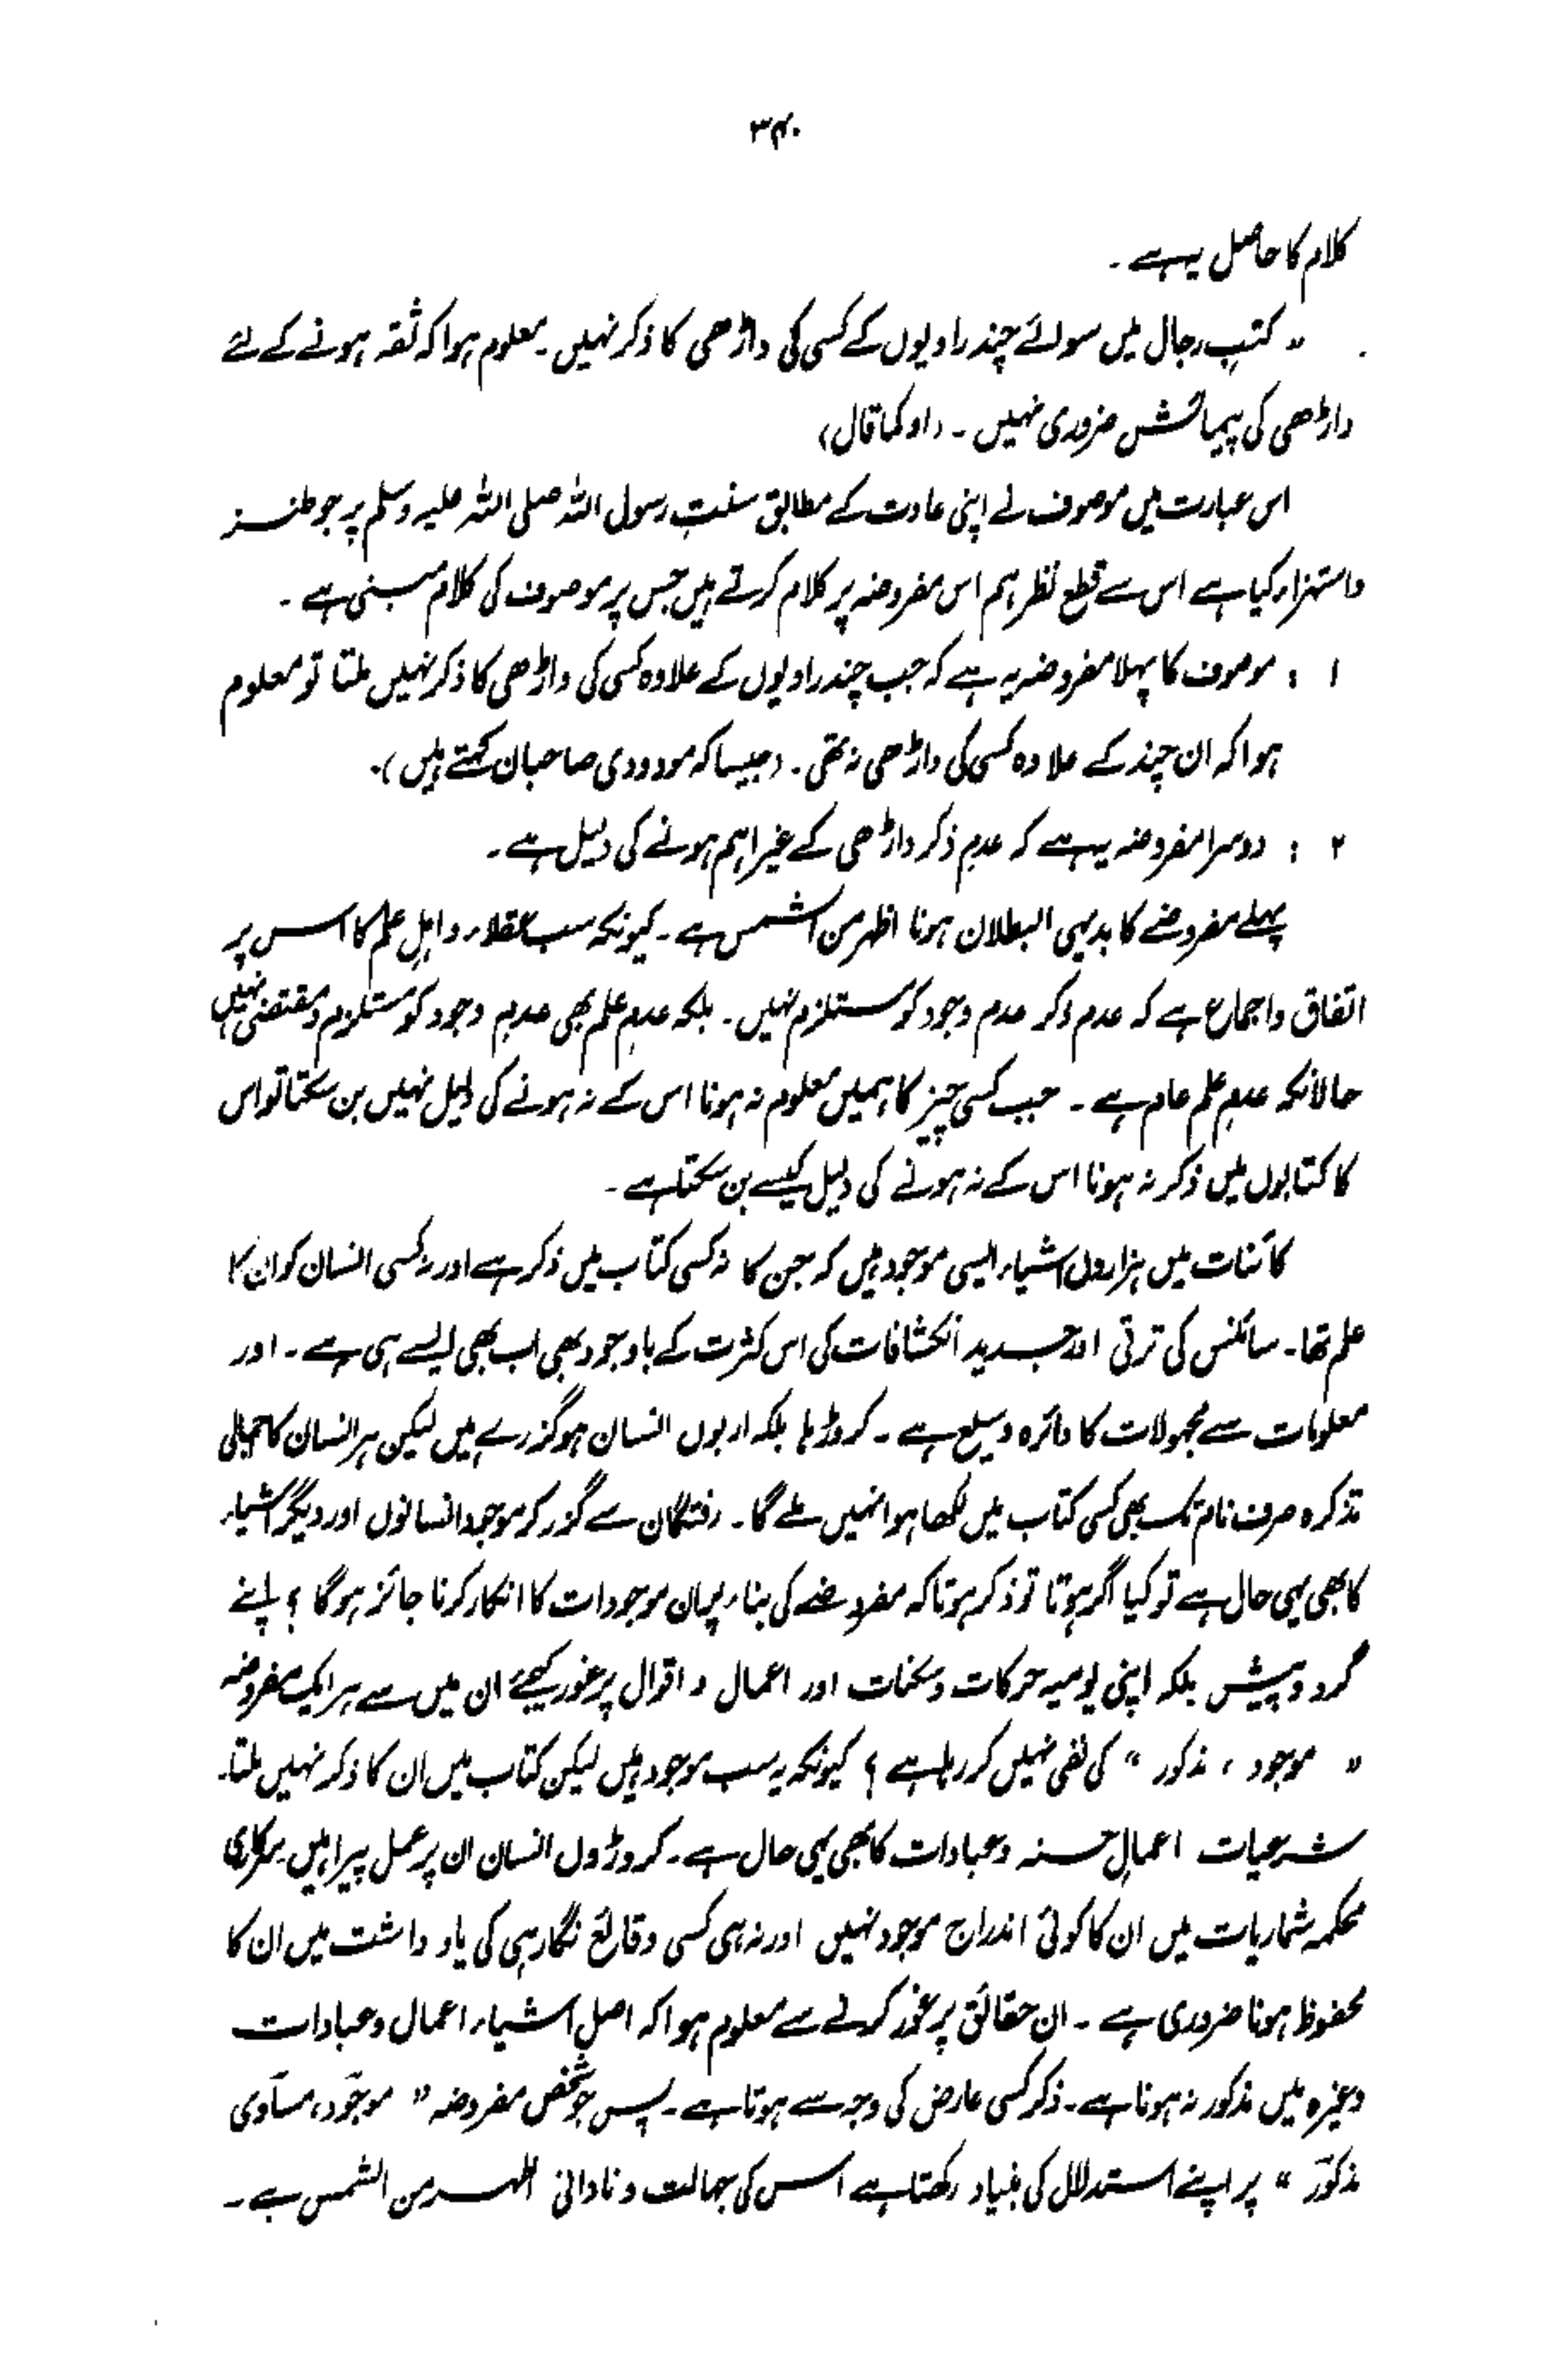 ۳۴۰
کلام کا حاصل یہ ہے ۔
" کتبِ رجال میں سوائے چند راویوں کے کسی کی داڑھی کا ذکر نہیں ۔ معلوم ہوا کہ ثقہ ہونے کے لئے
داڑھی کی پیمائش ضروری نہیں ۔ (او کما قال)
اس عبارت میں موصوف نے اپنی عادت کے مطابق سنتِ رسول اللہ صلی اللہ علیہ وسلم پر جو طنز
و استہزاء کیا ہے اس سے قطع نظر ہم اس مفروضہ پر کلام کرتے ہیں جس پر موصوف کی کلام مبنی ہے ۔
۱ : موصوف کا پہلا مفروضہ یہ ہے کہ جب چند راویوں کے علاوہ کسی کی داڑھی کا ذکر نہیں ملتا تو معلوم
ہوا کہ ان چند کے علاوہ کسی کی داڑھی نہ تھی ۔ (جیسا کہ مودودی صاحبان کہتے ہیں) ۔
۲ : دوسرا مفروضہ یہ ہے کہ عدمِ ذکر داڑھی کے غیر اہم ہونے کی دلیل ہے ۔
پہلے مفروضے کا بدیہی البطلان ہونا اظہر من الشمس ہے ۔ کیونکہ سب عقلاء و اہلِ علم کا اس پر
اتفاق و اجماع ہے کہ عدم ذکر عدم وجود کو مستلزم نہیں ۔ بلکہ عدمِ علم بھی عدمِ وجود کو مستلزم و مقتضی نہیں
حالانکہ عدمِ علم عام ہے ۔ جب کسی چیز کا ہمیں معلوم نہ ہونا اس کے نہ ہونے کی دلیل نہیں بن سکتا تو اس
کا کتابوں میں ذکر نہ ہونا اس کے نہ ہونے کی دلیل کیسے بن سکتا ہے ۔
کائنات میں ہزاروں اشیاء ایسی موجود ہیں کہ جن کا نہ کسی کتاب میں ذکر ہے اور نہ کسی انسان کو ان کا
علم تھا ۔ سائنس کی ترقی اور جدید انکشافات کی اس کثرت کے باوجود بھی اب بھی ایسے ہی ہے ۔ اور
معلومات سے مجہولات کا دائرہ وسیع ہے ۔ کروڑہا بلکہ اربوں انسان ہو گزرے ہیں لیکن ہر انسان کا اجمالی
تذکرہ صرف نام تک بھی کسی کتاب میں لکھا ہوا نہیں ملے گا ۔ رفتگان سے گزر کر موجود انسانوں اور دیگر اشیاء
کا بھی یہی حال ہے تو کیا اگر ہوتا تو ذکر ہوتا کہ مفروضے کی بناء پر ان موجودات کا انکار کرنا جائز ہوگا ؟ اپنے
گرد و پیش بلکہ اپنی یومیہ حرکات و سکنات اور اعمال و اقوال پر غور کیجئے ان میں سے ہر ایک مفروضہ
" موجود ، مذکور " کی نفی نہیں کر رہا ہے ؟ کیونکہ یہ سب موجود ہیں لیکن کتاب میں ان کا ذکر نہیں ملتا ۔
شرعیات اعمالِ حسنہ و عبادات کا بھی یہی حال ہے ۔ کروڑوں انسان ان پر عمل پیرا ہیں ۔ سرکاری
محکمہ شماریات میں ان کا کوئی اندراج موجود نہیں اور نہ ہی کسی وقائع نگار ہی کی یاد داشت میں ان کا
محفوظ ہونا ضروری ہے ۔ ان حقائق پر غور کرنے سے معلوم ہوا کہ اصل اشیاء اعمال و عبادات
وغیرہ میں مذکور نہ ہونا ہے ۔ ذکر کسی عارض کی وجہ سے ہوتا ہے ۔ پس جو شخص مفروضہ " موجود ، مساوی
مذکور " پر اپنے استدلال کی بنیاد رکھتا ہے اس کی جہالت و نادانی اظہر من الشمس ہے ۔